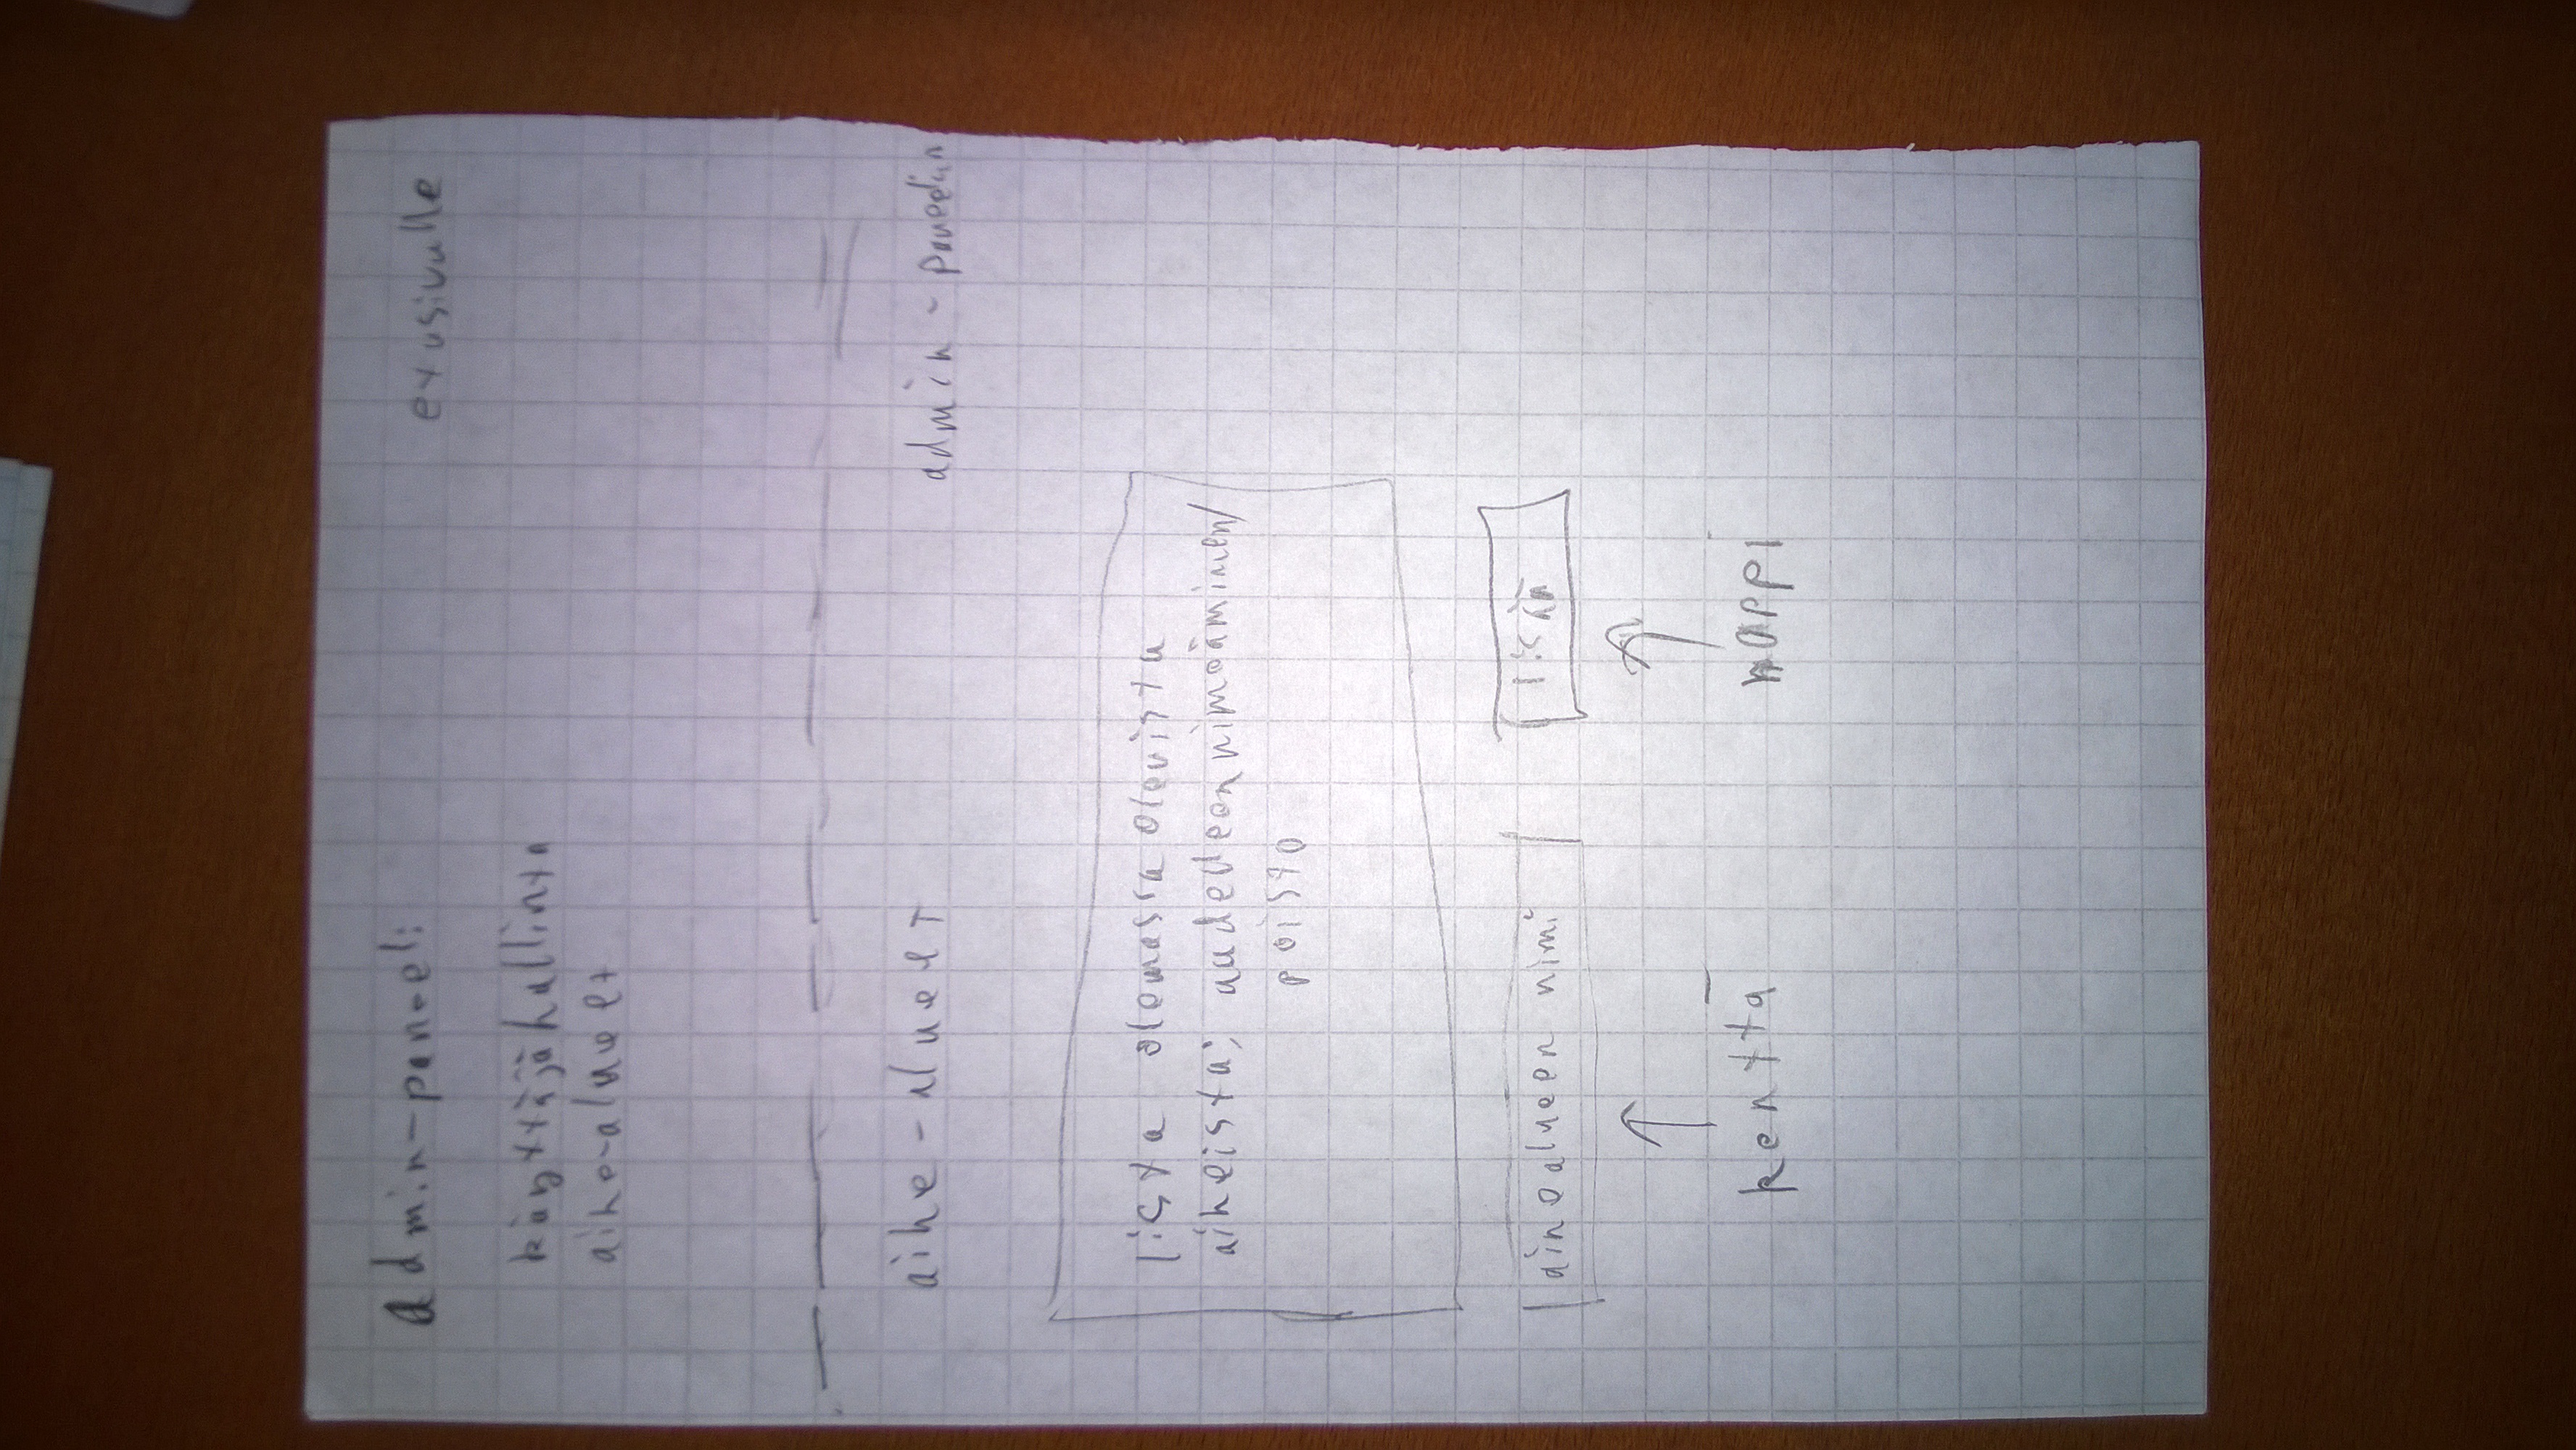 admin-paneli etusivulle
käyttäjähallinta
aihe-alueet
aihe-alueet admin-paneeliin
lista olemassa olevista
aiheista; uudelleen nimeäminen/
poisto
aihealueen nimi lisää
kenttä nappi